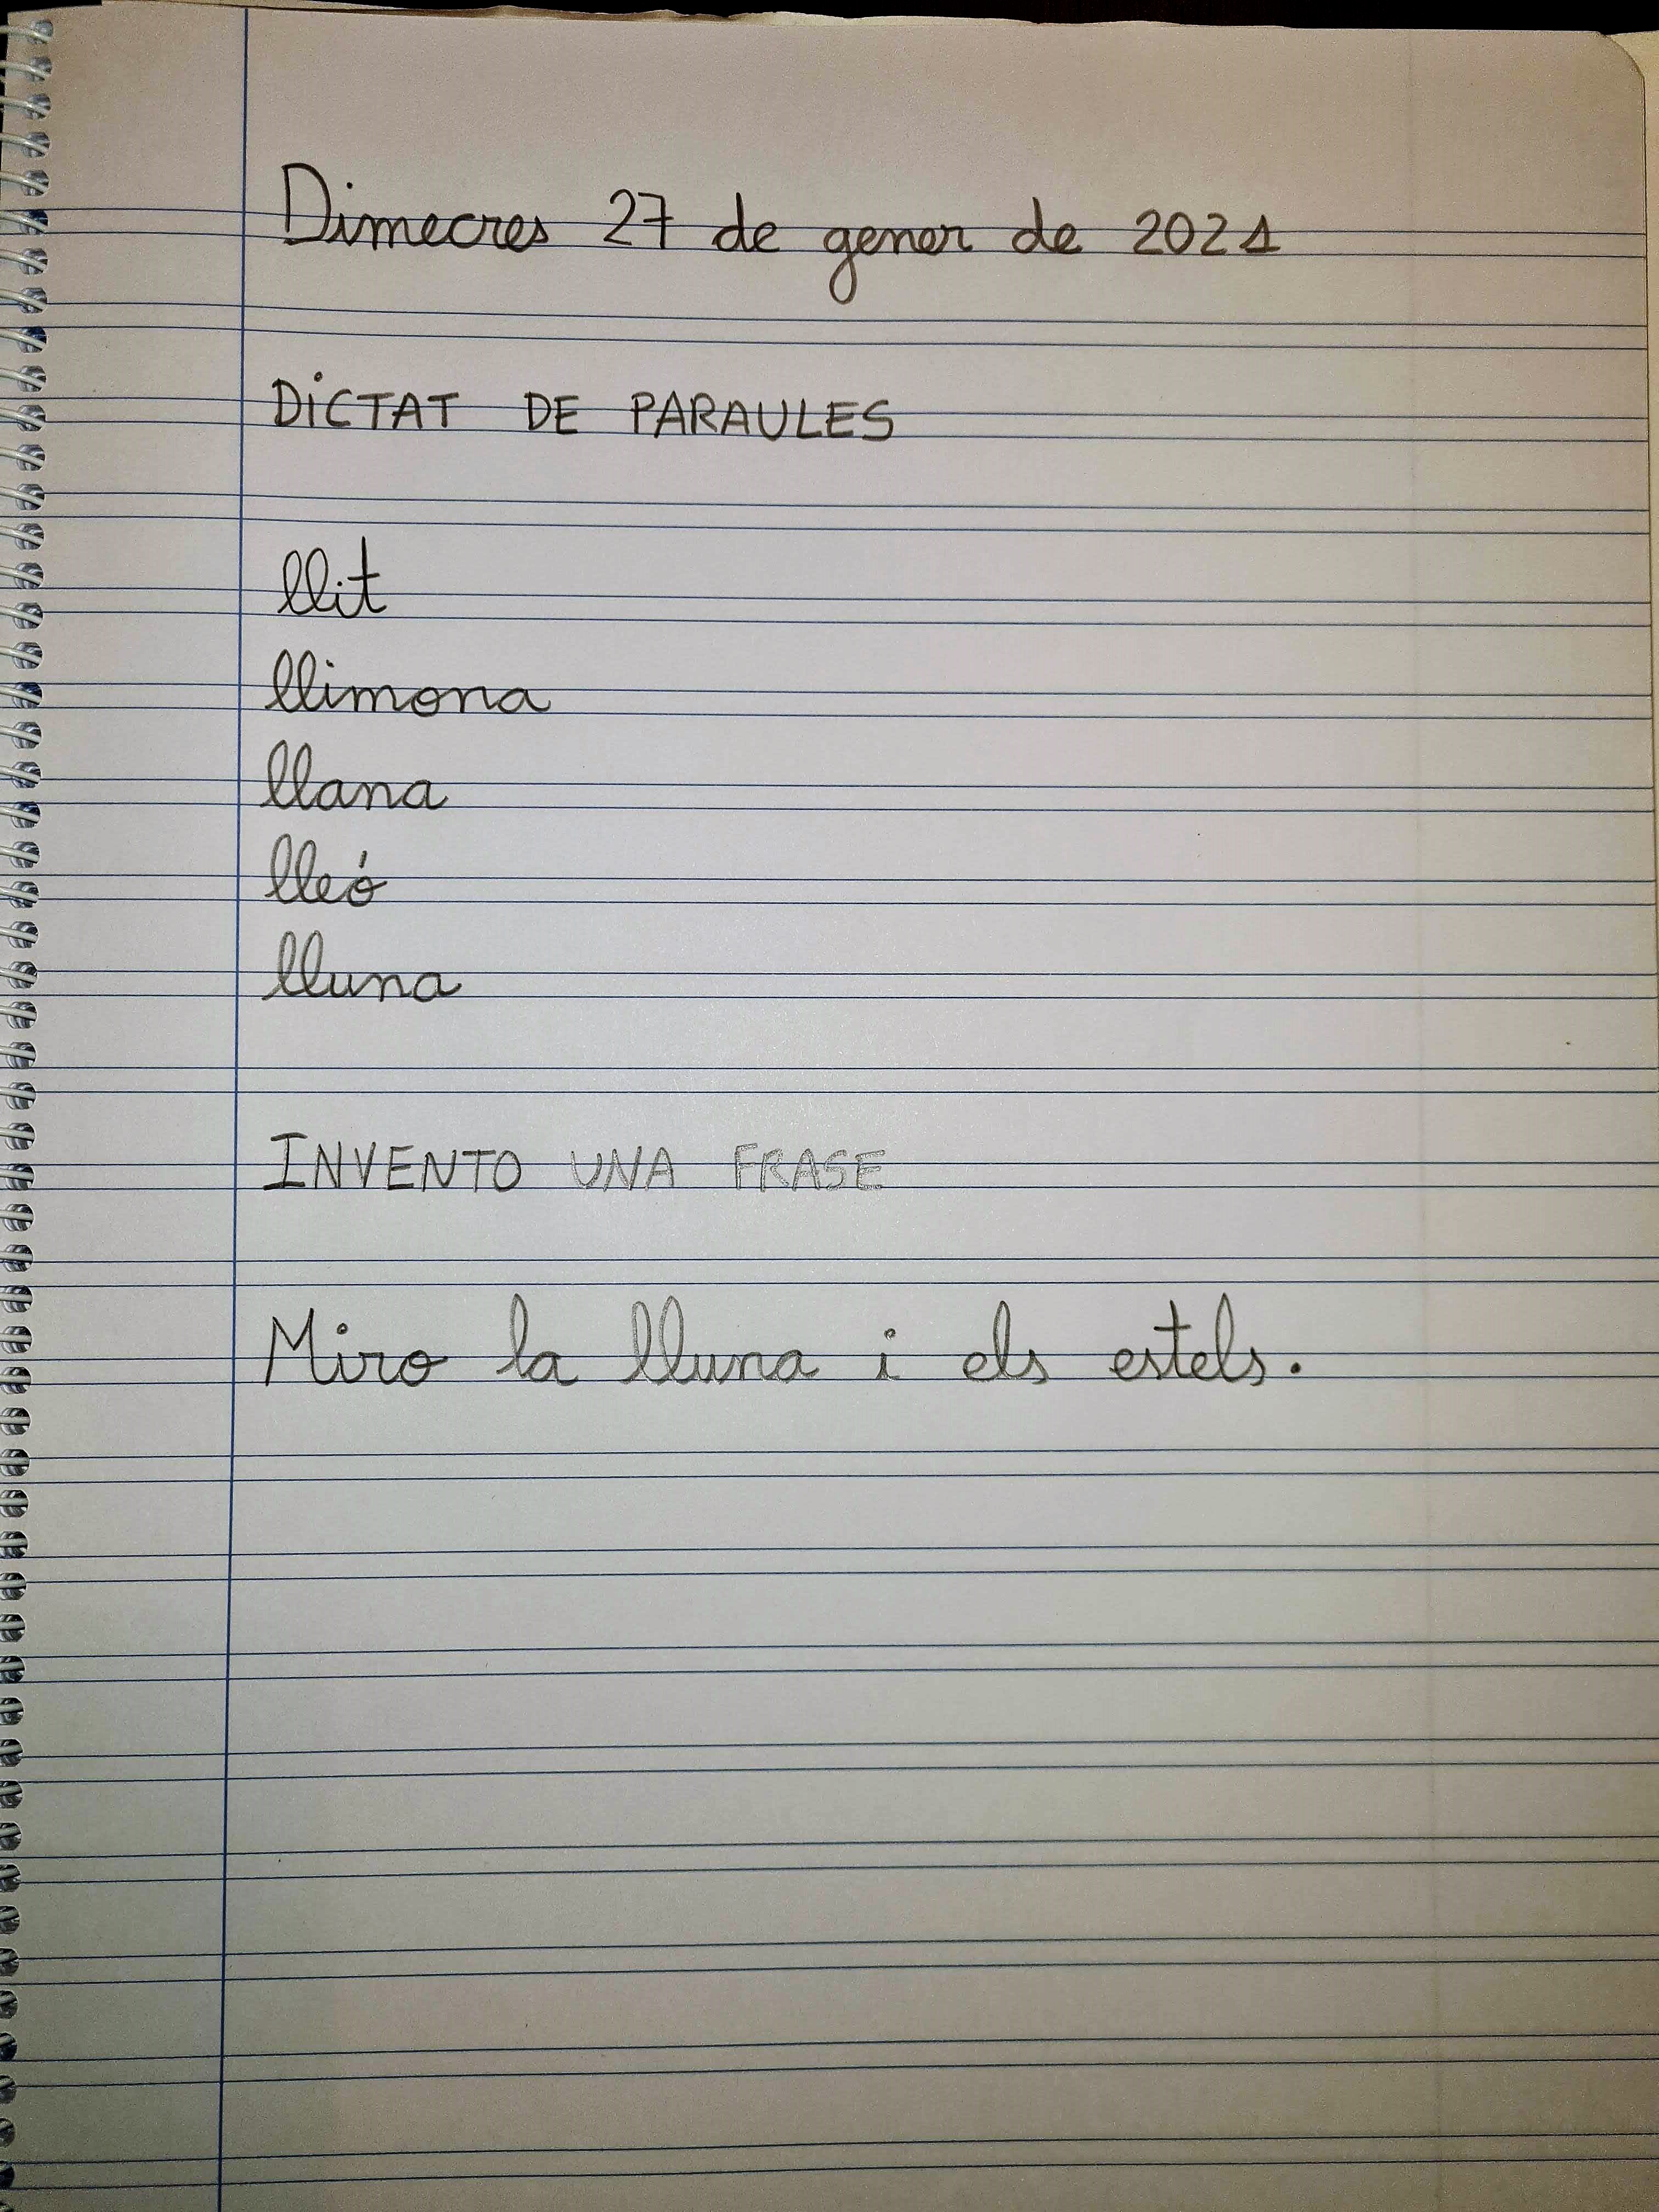 Dimecres 27 de gener de 2021
DiCTAT DE PARAULES
llit
llimona
llana
lleó
lluna
INVENTO UNA FRASE
Miro la lluna i els estels.